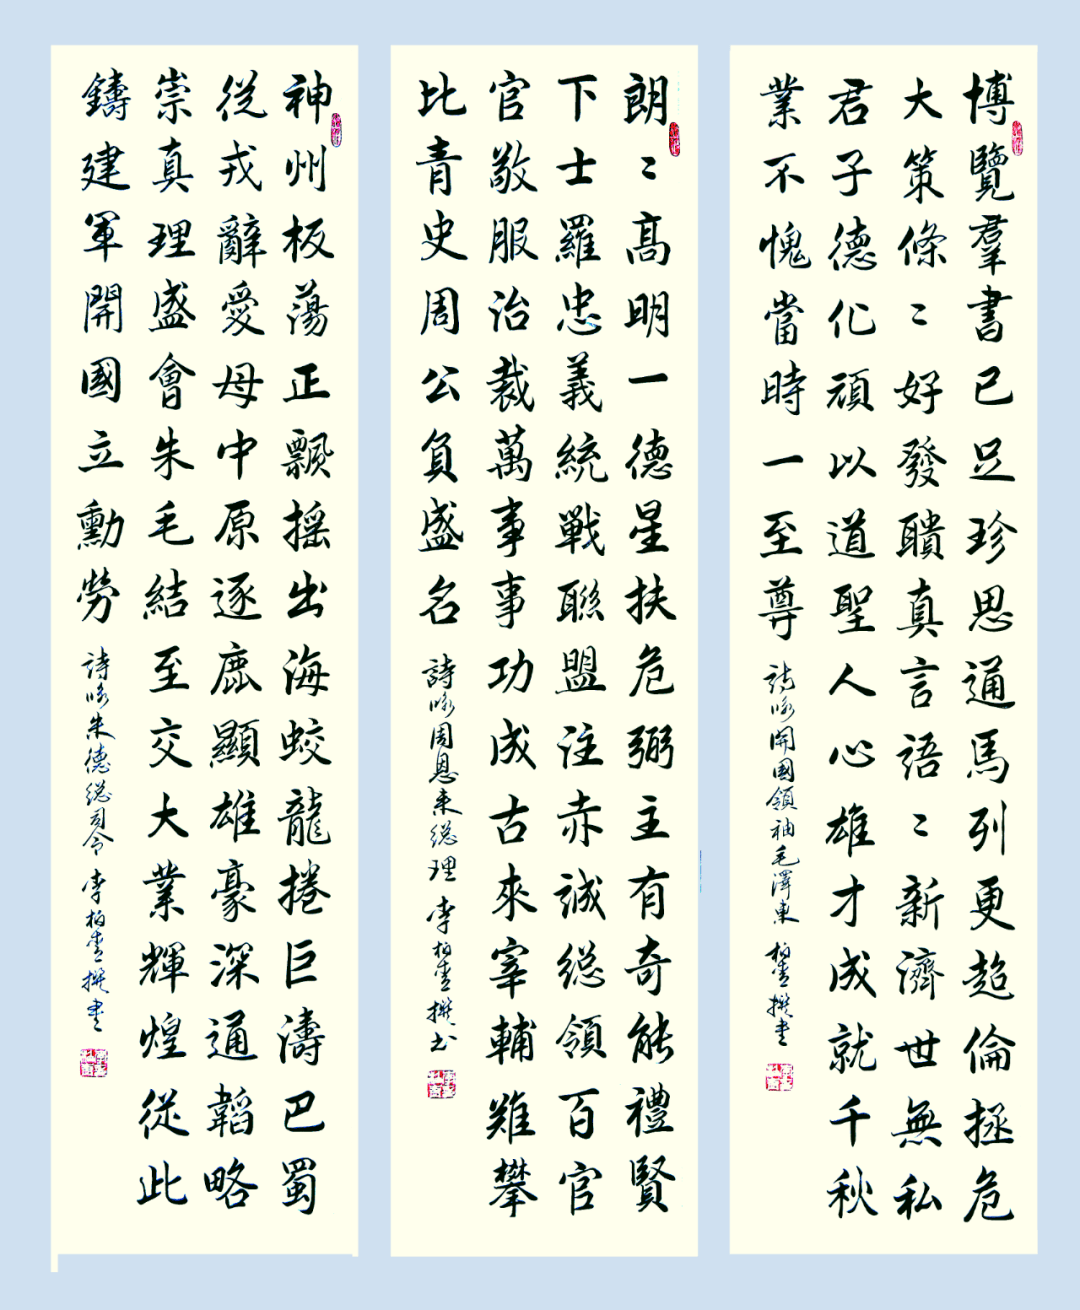 博覽羣書已足珍思通馬列更超倫拯危
大策條〻好發聵真言語〻新濟世無私
君子德化頑以道聖人心雄才成就千秋
業不愧當時一至尊 詩咏開國領袖毛澤東 柏青撰書
朗〻髙明一德星扶危弼主有奇能禮賢
下士羅忠義統戰聯盟注赤誠総領百官
官敬服治裁萬事事功成古來宰輔難攀
比青史周公負盛名 詩咏周恩來総理 李柏青撰书
神州板蕩正飄搖出海蛟龍捲巨濤巴蜀
從戎辭愛母中原逐鹿顯雄豪深通韜略
崇真理盛會朱毛結至交大業輝煌從此
鑄建軍開國立勳勞 詩咏朱德総司令 李柏青撰書